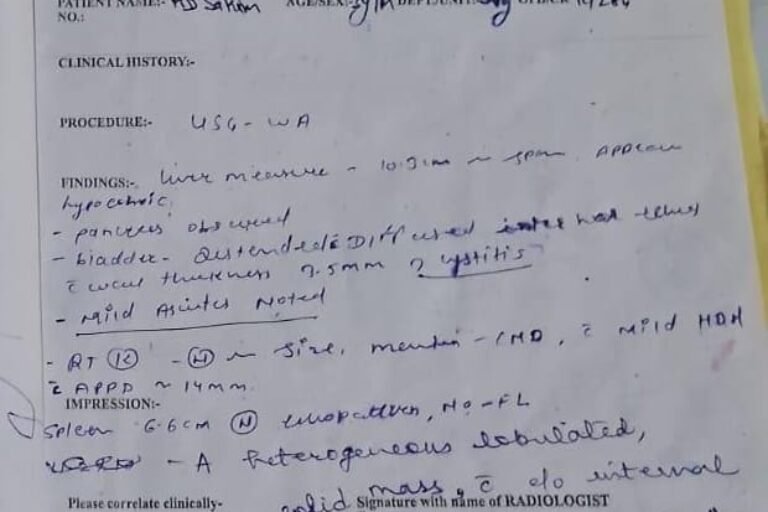 PATIENT NAME:- MD Sakam AGE/SEX:- 3y/M DEPT/UNIT:
NO.:
CLINICAL HISTORY:-
PROCEDURE:- USG - WA
FINDINGS:- liver measure ~ 10.3cm in span. Appear
hypoechoic.
- pancreas obscured
- bladder - Distended c̄ Diffused internal echus
c̄ wall thickness 7.5mm ? cystitis
- Mild Ascites Noted
- RT (K) - (N) in size, maintain - CMD, c̄ mild HDN
c̄ APPD ~ 14mm.
IMPRESSION:-
Spleen 6.6cm (N) echopattern, No - FL
- A heterogeneous lobulated,
solid mass, c̄ e/o internal
Please correlate clinically- Signature with name of RADIOLOGIST